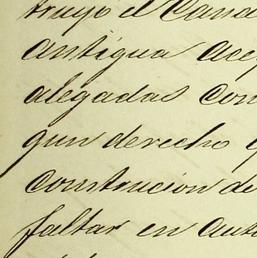 truyo el Cana
antigua ace
alegadas con
gun derecho
construcion de
faltar en auto